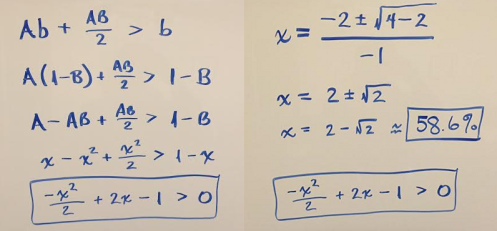 Ab + AB/2 > b
A(1-B) + AB/2 > 1-B
A - AB + AB/2 > 1-B
x - x² + x²/2 > 1-x
-x²/2 + 2x - 1 > 0
x = -2 ± √4-2 / -1
x = 2 ± √2
x = 2 - √2 ≈ 58.6%
-x²/2 + 2x - 1 > 0